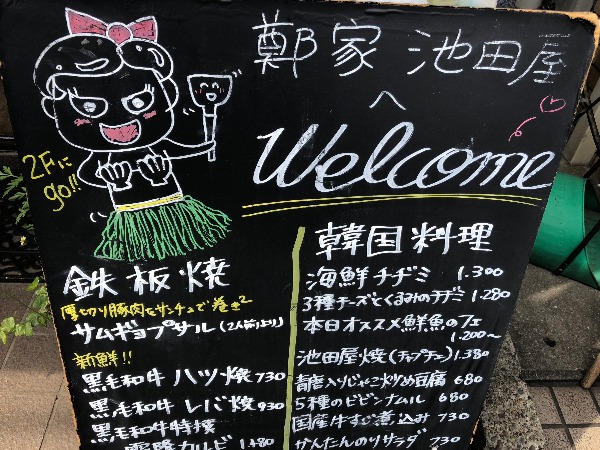 鄭家 池田屋
へ
Welcome
2Fに
go!!
鉄板焼
厚切り豚肉をサンチュで巻き2
サムギョプサル(2人前より)
新鮮!!
黒毛和牛 ハツ焼 730
黒毛和牛 レバ焼 930
黒毛和牛特撰
霜降カルビ 1,480
韓国料理
海鮮チヂミ 1.300
3種チーズとくるみのチヂミ 1.280
本日オススメ鮮魚の
1.200~
池田屋焼(チャプチェ) 1.380
青唐入りじゃこ炒め豆腐 680
5種のビビンナムル 680
国産牛すじ煮込み 730
かんたんのりサラダ 730